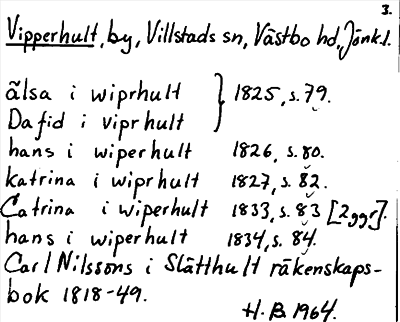 3.
Vipperhult, by, Villstads sn, Västbo hd, Jönk.l.
älsa i wiprhult } 1825, s. 79.
Dafid i viprhult
hans i wiperhult 1826, s. 80.
katrina i wiprhult 1827, s. 82.
Catrina i wiperhult 1833, s. 83 [2ggr].
hans i wiperhult 1834, s. 84.
Carl Nilssons i Slätthult räkenskaps-
bok 1818-49.
H.B. 1964.